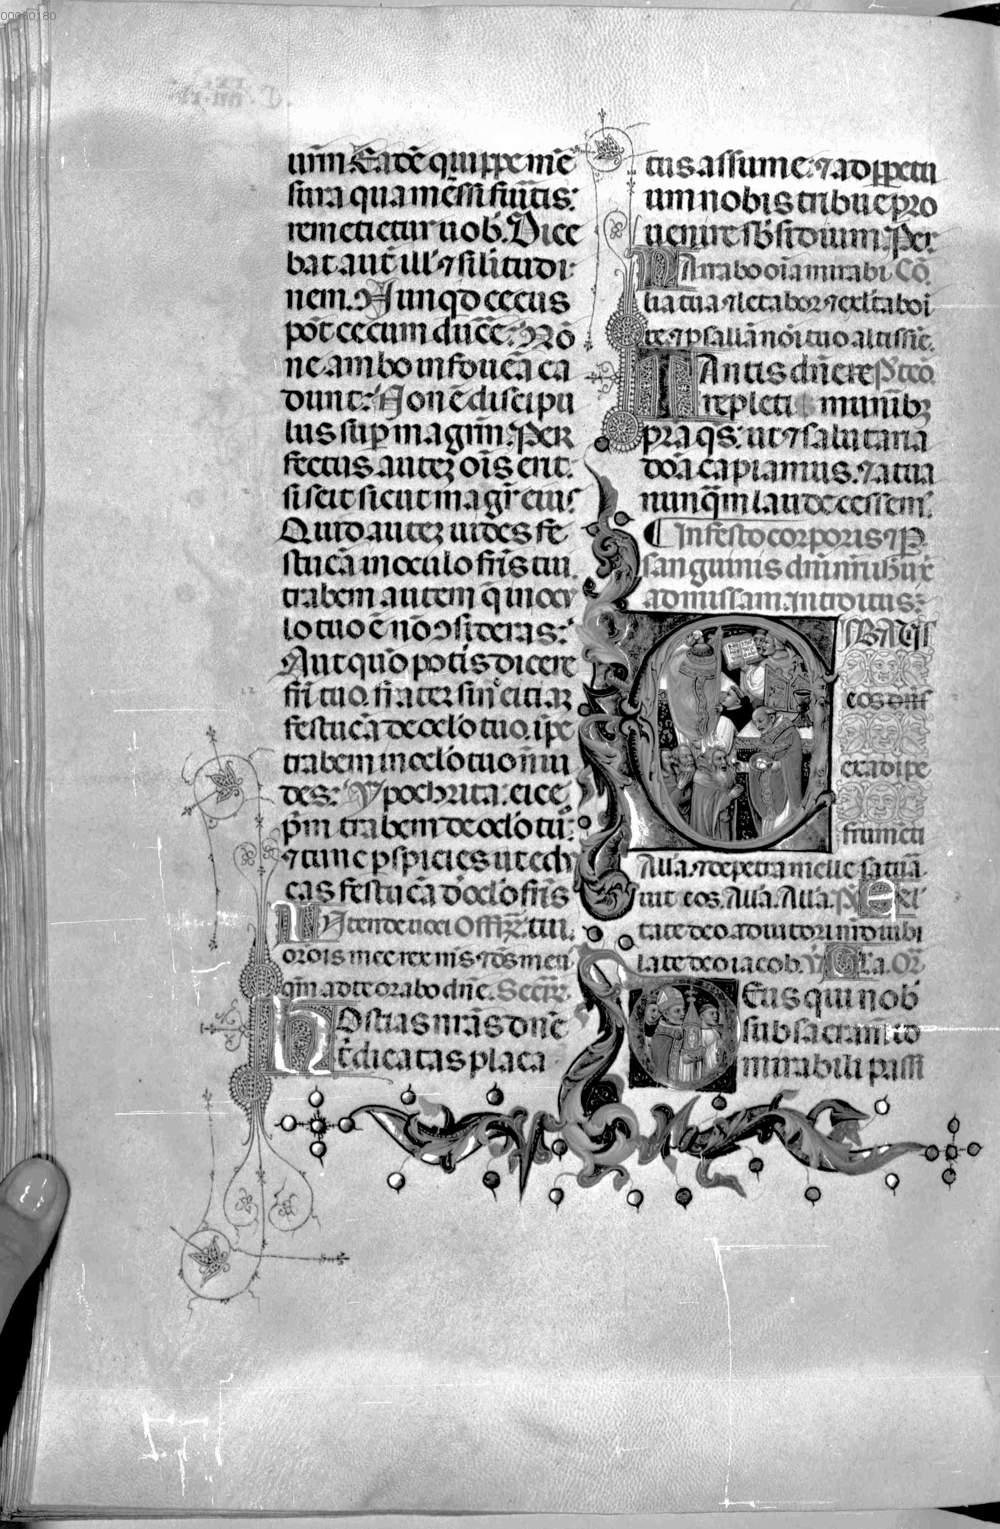 00960180
uum. Eadē quippe mē
sura qua mēssi fuītis:
remetietur uob̄. Dice
bat aut̄ ill̄ ⁊ silitudi
nem. Nunqd cecus
pōt cecum ducē? Nō
ne ambo in foueā ca
dunt? Non ē discipu
lus sup magrm̄. Per
fectus autez ois erit.
si scit sicut magr̄ eius.
Quid autez uides fe
stucā in oculo fr̄is tui.
trabem autem q̄ in ocu
lo tuo ē nō ↄsideras?
Aut quo potis dicere
fr̄i tuo. frater sin̄ eiciaz
festucā de oclo tuo. ip̄e
trabem in oclo tuo n̄ ui
des? Ypochrita. eice
p̄m trabem de oclo tuo:
⁊ tunc p̱spicies ut edu
cas festucā d̓ oclo fr̄is
tui.
INtende uoci Offr̄z.
orōis mee rex m̄s ⁊ ds̄ meu
qm̄ ad te orabo dn̄e. Secr̄e.
HOstias nrās dn̄e
t̓ dicatas placa
tus assume: ⁊ ad p̱petu
um nobis tribue pro
uenire sb̄sidium. Per
NArrabo oīa mirabi Cō.
lia tua ⁊ letabor ⁊ exl̄tabo ī
te. ⁊ psallā nōi tuo altissīe.
TAntis dn̄e re Ptcō.
repleti munib̄z
pra q̄s: ut ⁊ salutaria
dōa capiamus. ⁊ a tua
nunq̄m laude cessem̄.
In festo corporis ⁊
sanguinis dn̄i nr̄i
ad missam. Introitus.
CIBAVIT
eos dn̄s
ex adipe
frumēti
Alla. ⁊ de petra melle saturā
uit eos. Alla. Alla. Ps̄. Exl̄
tate deo adiutori nr̄o iubi
late deo iacob. V̄. Gla. Or̄.
DEus qui nob̄
sub sacram̄to
mirabili passi